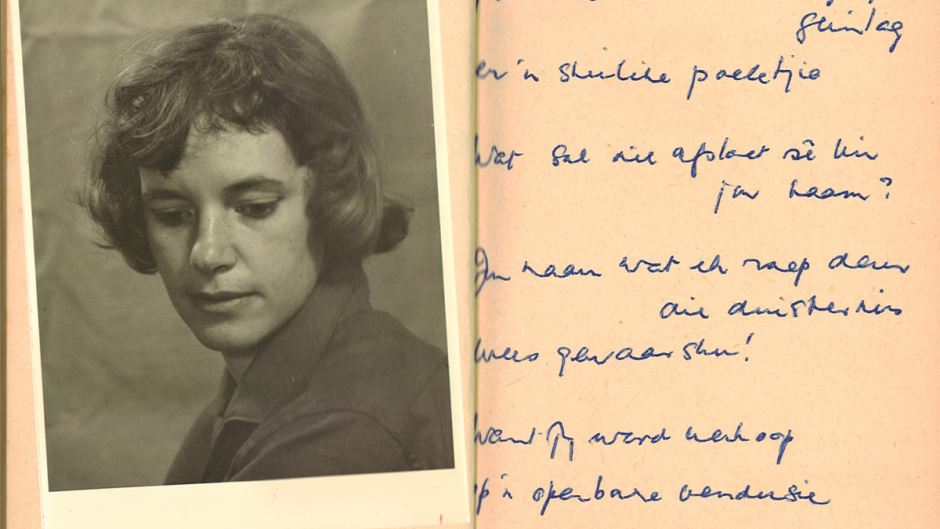 glimlag
'n skielike poeletjie
Wat sal die afslaer sê hier
jou naam?
Jou naam wat ek roep deur
die duisternis
wees gewaarsku!
Want jy word verkoop
op 'n openbare vendusie